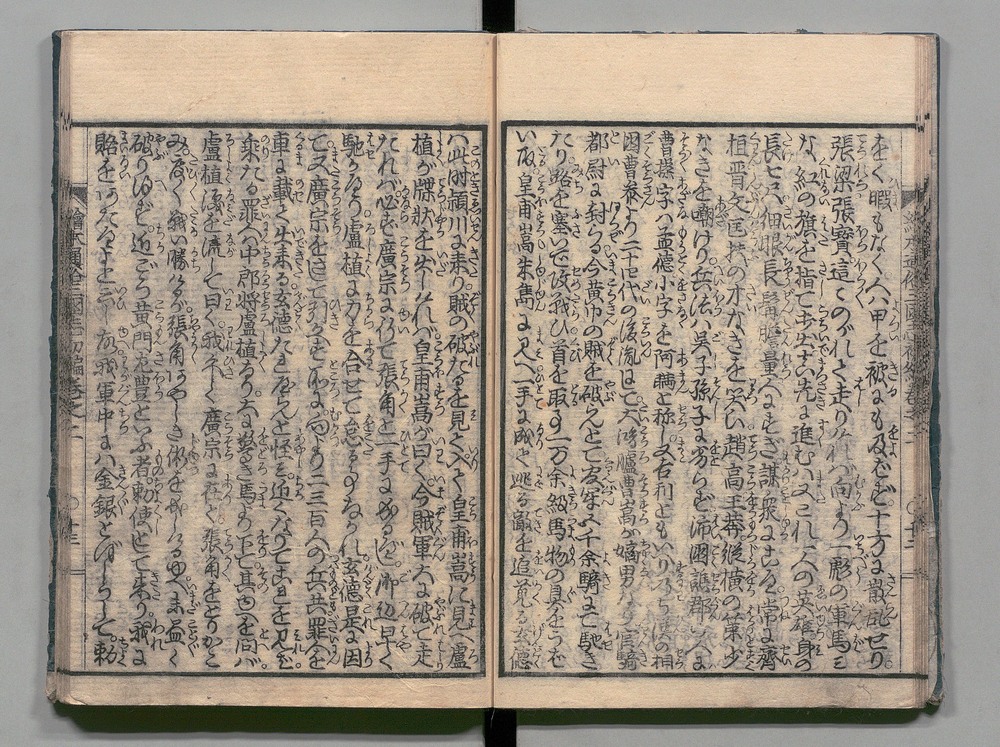 をく暇もなく人甲を被にも及ばず十方に散乱せり
張梁張寳這々のがれ走りければ向より一彪の軍馬ミ
な紅の旗を指て歩出真先に進むハこれ一人の英雄身の
長七尺細眼長髯膽量人にすぎ謀衆にこへ常に齊
桓晋文匡扶の才なきを笑い趙高王莽縦横の策少
なきを嘲けり兵法ハ呉子孫子に劣らず沛國譙郡の人に
曹操字ハ孟徳小字を阿瞞と称し又吉利ともいりすなち漢の相
国曹参より二十四代の後胤にて大鴻臚曹嵩が嫡男なり官騎
都尉に封らる今黄巾の賊を破んとて友軍五千余騎にて馳き
たり路を塞いで攻戦ひ首を取る一万余級馬物の具をうば
い取皇甫嵩朱雋に見へ一手に成て逃る敵を追蒐る玄徳
ハ此時頴川に来り賊の破たるを見とゞけ皇甫嵩に見へ盧
植が牒状を出しければ皇甫嵩が曰く今賊軍大に破て走
たれバ必ず廣宗に行て張角と一手になるべし御辺早く
馳かへり盧植に力を合せて怠るゝなかれ玄徳是に因
て又廣宗をさして打立ける所に向より二三百人の兵共罪人を
車に載て出来る玄徳たそやらんと怪ミ近くなりてこれを見れば
乘たる罪人ハ中郎将盧植なり大に驚き馬より下て其由を問バ
盧植涙を流して曰く我久しく廣宗に在て張角をとりかこ
み度々戦い勝けるが張角あやしき術をおこなふゆへに未全く
破り得ず近ごろ黄門左豊といふ者勅使として来り我に
賂をもとむなすと云ども我軍中にハ金銀とぼしくて勅
繪本通俗三國志初編巻之二